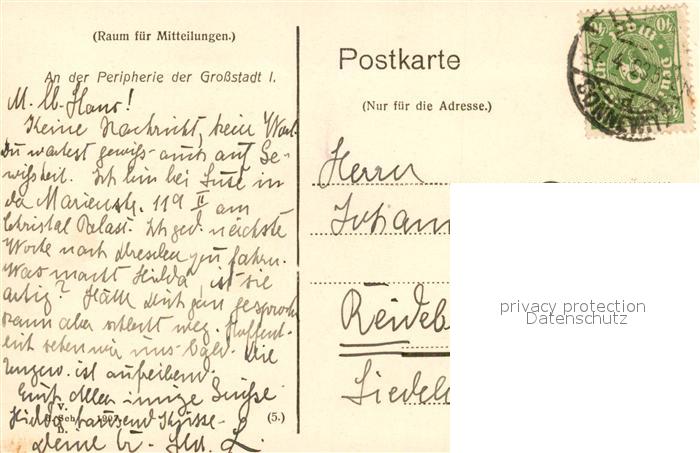 (Raum für Mitteilungen.)
An der Peripherie der Großstadt I.
M. lb. Hans!
Keine Nachricht, kein Wort.
Du wartest gewiss auch auf Ge-
wißheit. Ich bin bei Suse in
da Marienstr. 119 II am
Christal Palast. Ich ged. nächste
Woche nach Dresden zu fahren.
Was macht Hilda, ist sie
artig? Hätte dich gern gesproch
kann aber schlecht weg. Hoffent-
lich sehen wir uns bald. Die
Ungew. ist aufreibend.
Euch allen innige Grüße
Hilda tausend Küsse.
Deine
V.
b.
1907
(5.)
Postkarte
(Nur für die Adresse.)
Herrn
Johann
Reideb
Siedel
40
CHEMNITZ
privacy protection
Datenschutz